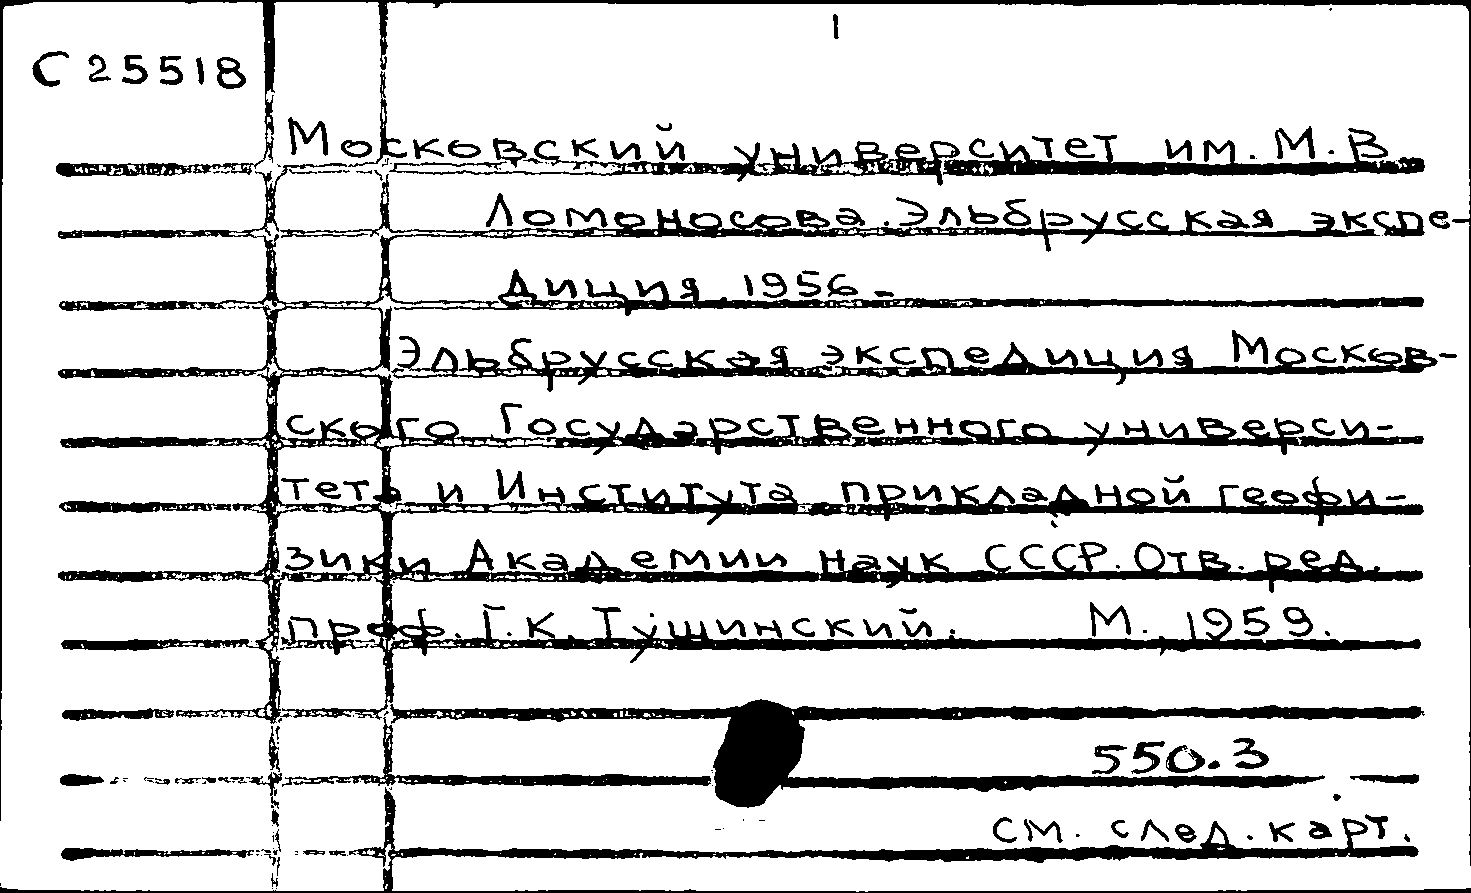 1
С 25518
Московский университет им. М. В.
Ломоносова. Эльбрусская экспе-
диция. 1956-
Эльбрусская экспедиция Москов-
ского Государственного универси-
тета и Института прикладной геофи-
зики Академии наук СССР. Отв. ред.
проф. Г. К. Тушинский. М., 1959.
550.3
см. след. карт.